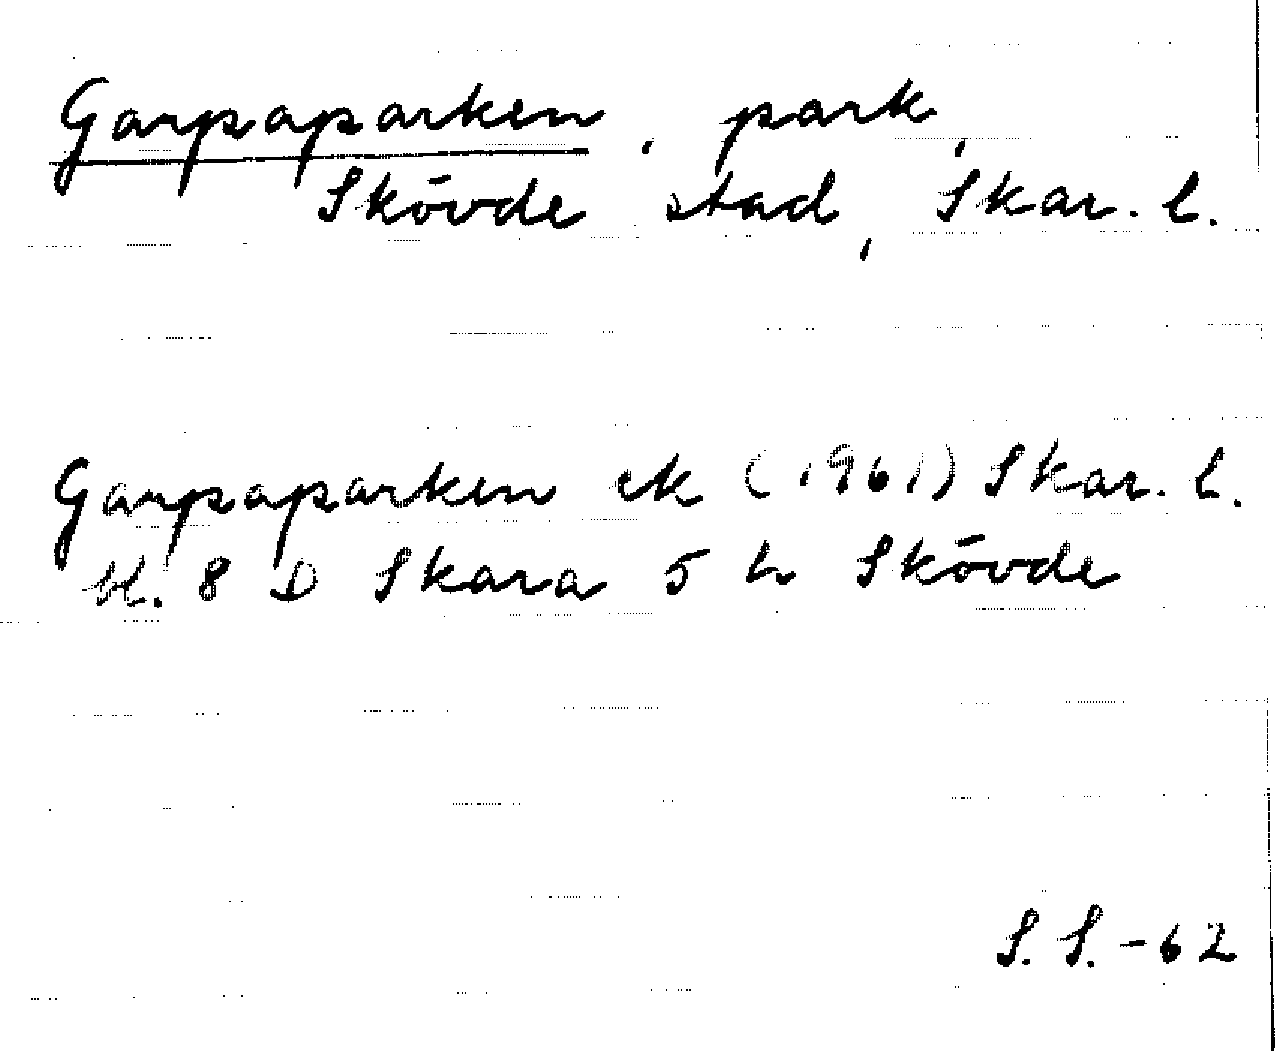 Garpaparken, park,
Skövde stad, Skar. l.
Garpaparken ek (1961) Skar. l.
bl. 8 D Skara 5 h Skövde
S. S. -62